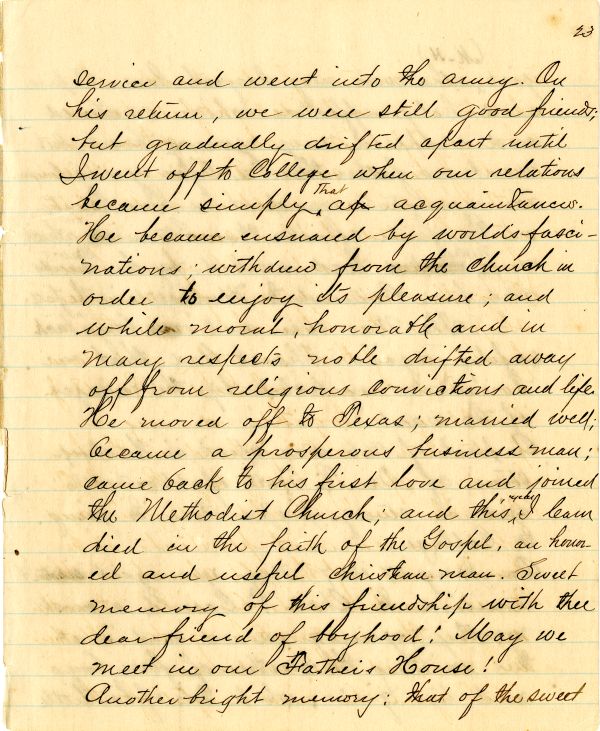 23
service and went into the army. On
his return, we were still good friends;
but gradually drifted apart until
I went off to College when our relations
became simply that of acquaintances.
He became ensnared by worlds fasci-
nations; withdrew from the church in
order to enjoy its pleasure; and
while moral, honorable and in
many respects noble drifted away
off from religious convictions and life.
He moved off to Texas; married well;
became a prosperous business man;
came back to his first love and joined
the Methodist Church; and this, I learn
died in the faith of the Gospel, an honor-
ed and useful christian man. Sweet
memory of this friendship with thee
dear friend of boyhood! May we
meet in our Father's House!
Another bright memory: that of the sweet